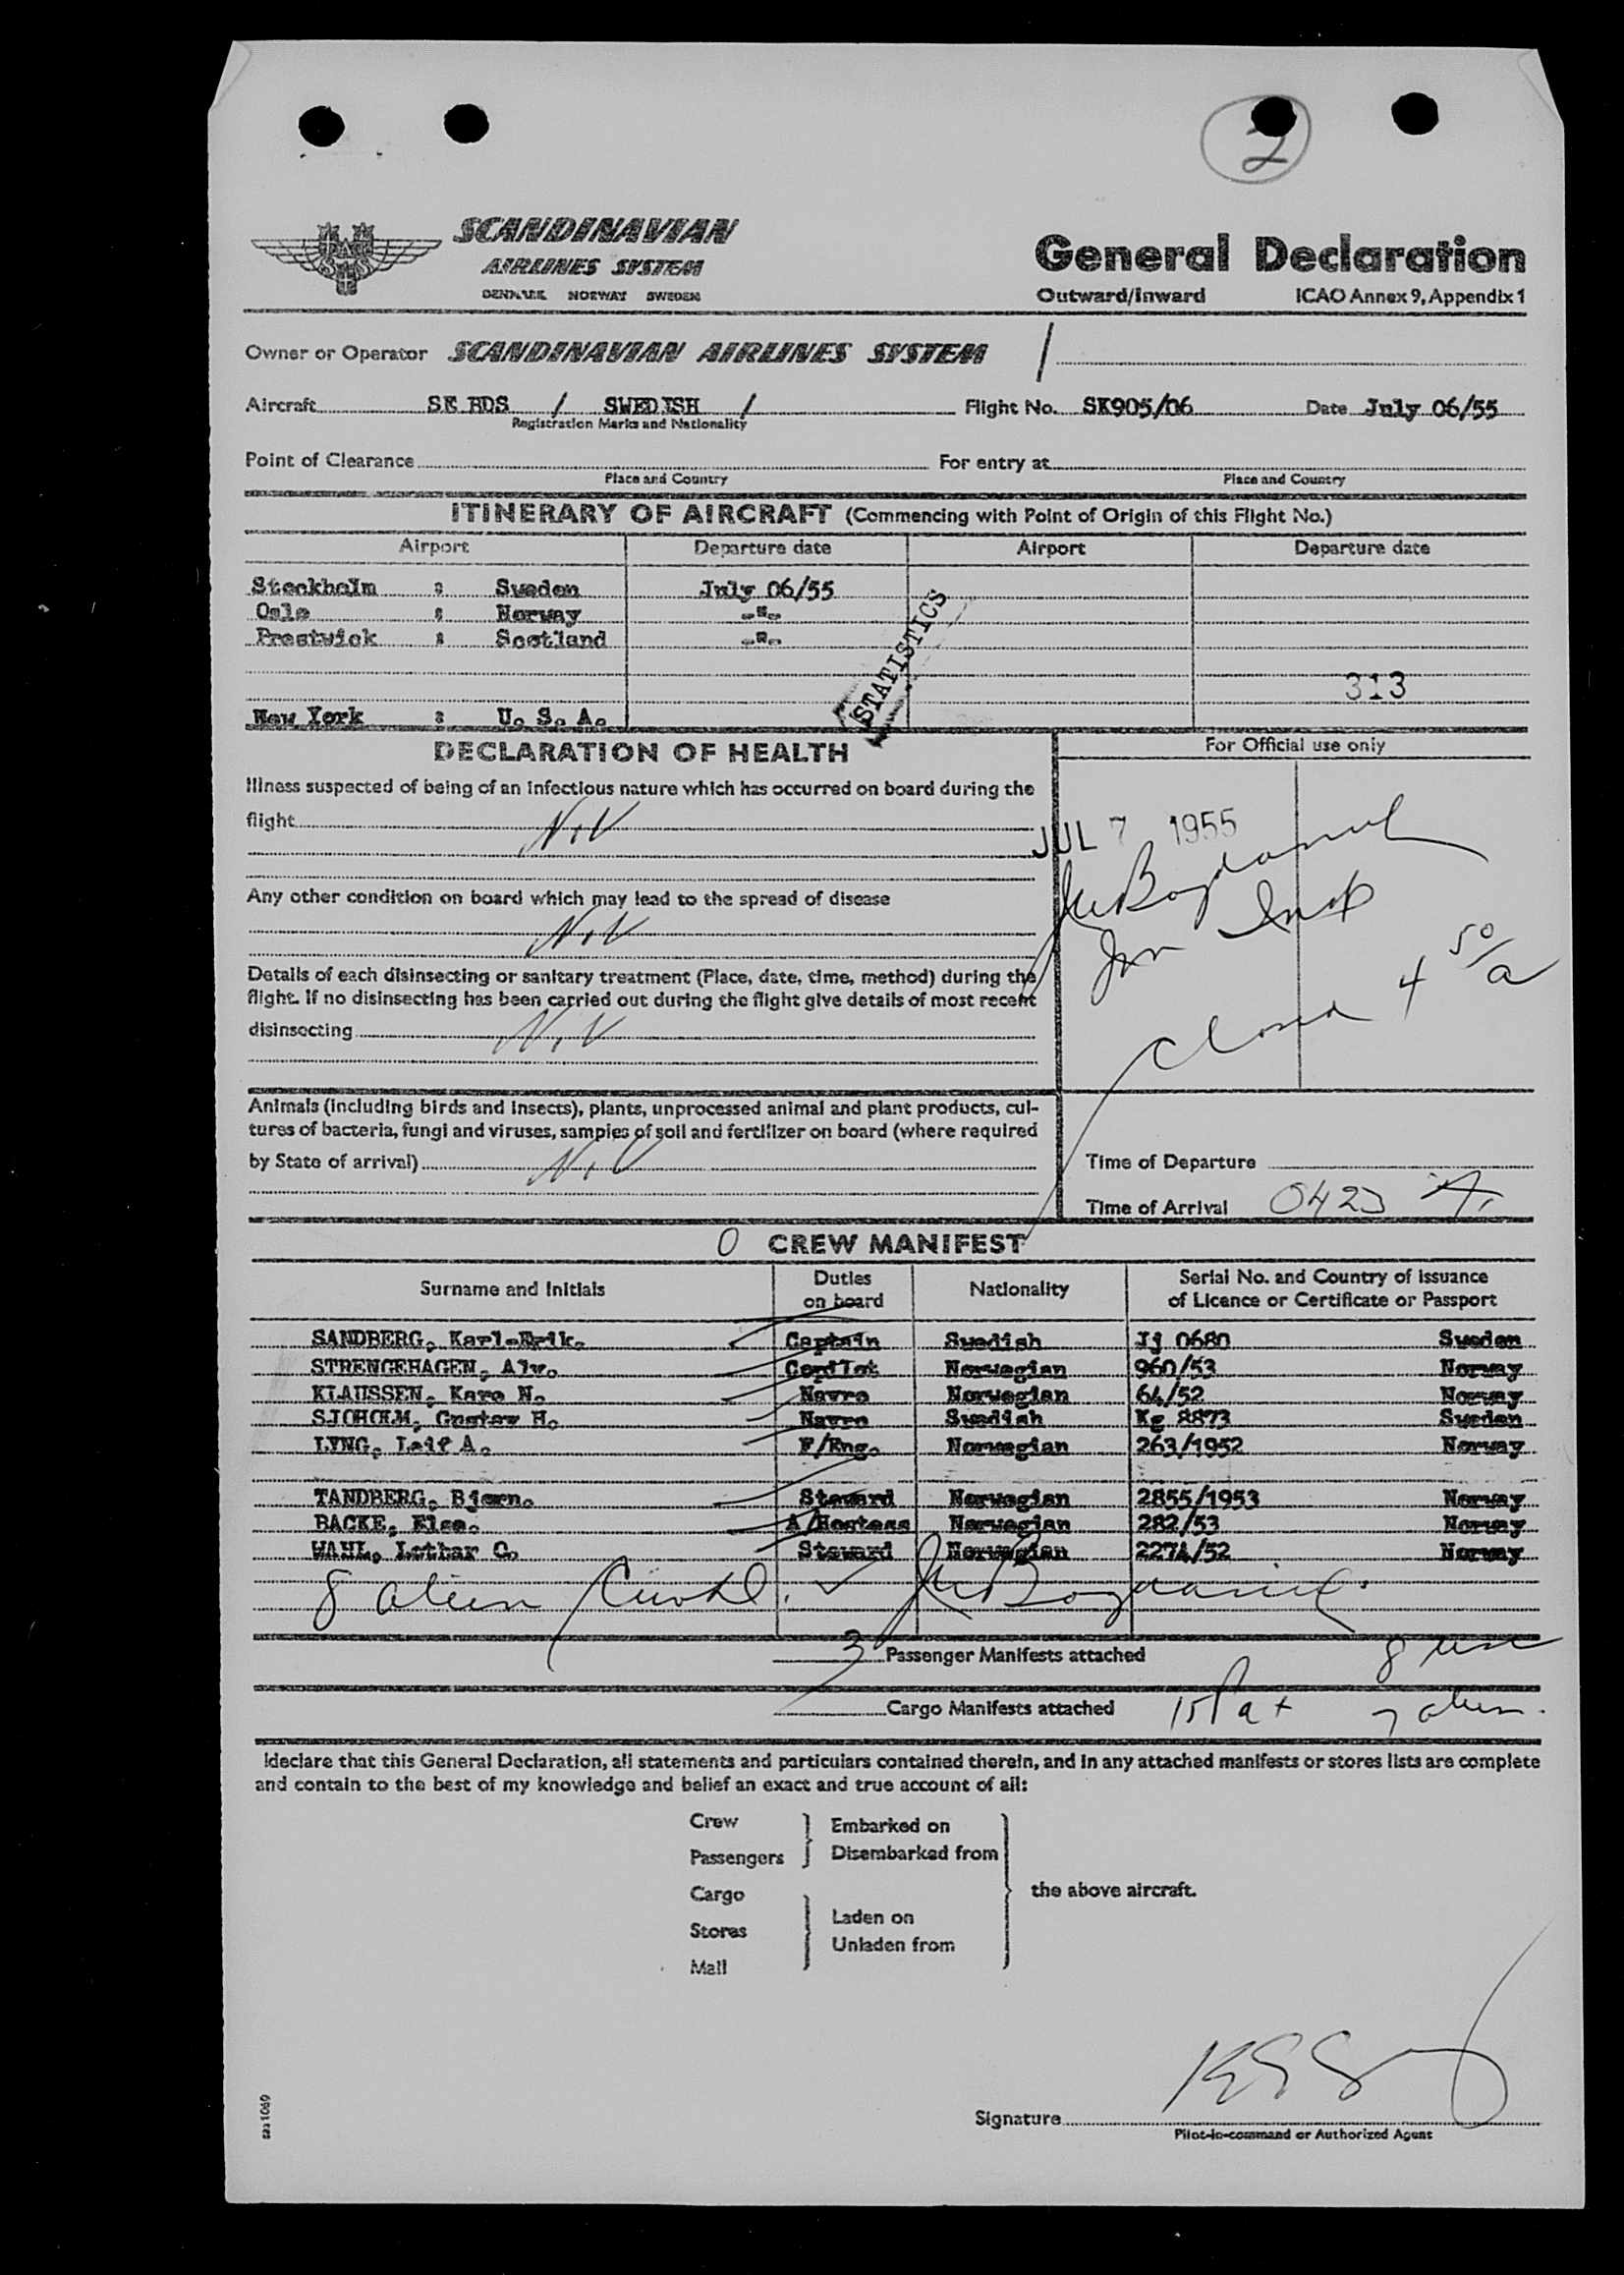 2
SCANDINAVIAN
AIRLINES SYSTEM
DENMARK NORWAY SWEDEN
General Declaration
Outward/Inward ICAO Annex 9, Appendix 1
Owner or Operator SCANDINAVIAN AIRLINES SYSTEM /
Aircraft SE BDS / SWEDISH / Flight No. SK905/06 Date July 06/55
Registration Marks and Nationality
Point of Clearance For entry at
Place and Country Place and Country
ITINERARY OF AIRCRAFT (Commencing with Point of Origin of this Flight No.)
Airport Departure date Airport Departure date
Stockholm : Sweden July 06/55
Oslo : Norway -"-
Prestwick : Scotland -"-
STATISTICS
313
New York : U. S. A.
DECLARATION OF HEALTH
For Official use only
Illness suspected of being of an infectious nature which has occurred on board during the
flight N.V
JUL 7 1955
Any other condition on board which may lead to the spread of disease
N.V
Details of each disinsecting or sanitary treatment (Place, date, time, method) during the
flight. If no disinsecting has been carried out during the flight give details of most recent
disinsecting N.V
Closed 4 50/a
Animals (including birds and insects), plants, unprocessed animal and plant products, cul-
tures of bacteria, fungi and viruses, samples of soil and fertilizer on board (where required
by State of arrival) N.V
Time of Departure
Time of Arrival
0 CREW MANIFEST
Surname and Initials Duties on board Nationality Serial No. and Country of issuance of Licence or Certificate or Passport
SANDBERG, Karl-Erik. Captain Swedish Jj 0680 Sweden
STRENGEHAGEN, Alv. Copilot Norwegian 960/53 Norway
KLAUSSEN, Kare N. Navro Norwegian 64/52 Norway
SJOHOLM, Gustav H. Navro Swedish Kg 8873 Sweden
LYNG, Leif A. F/Eng. Norwegian 263/1952 Norway
TANDBERG, Bjorn. Steward Norwegian 2855/1953 Norway
BACKE, Else. A/Hostess Norwegian 282/53 Norway
WAHL, Lothar C. Steward Norwegian 2274/52 Norway
8 alien
3 Passenger Manifests attached
Cargo Manifests attached
15 Pax 7 alien.
I declare that this General Declaration, all statements and particulars contained therein, and in any attached manifests or stores lists are complete
and contain to the best of my knowledge and belief an exact and true account of all:
Crew
Passengers
Embarked on
Disembarked from
Cargo
Stores
Mail
Laden on
Unladen from
the above aircraft.
Signature
Pilot-in-command or Authorized Agent